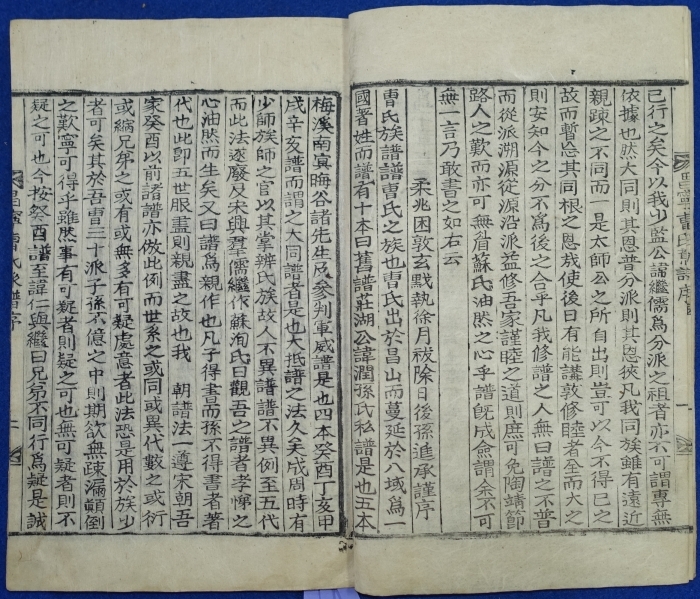 已行之矣今以我少監公諱繼儒爲分派之祖者亦不可謂專無
依據也然大同則其恩普分派則其恩狹凡我同族雖有遠近
親疎之不同而一是太師公之所自出則豈可以今不得已之
故而暫忘其同根之恩哉使後日有能講敦修睦者至而大之
則安知今之分不爲後之合乎凡我修譜之人無曰譜之不普
而從派溯源從源沿派益修吾家謹睦之道則庶可免陶靖節
路人之歎而亦可無眉蘇氏油然之心乎譜旣成僉謂余不可
無一言乃敢書之如右云
柔兆困敦玄黓執徐月祓除日後孫進承謹序
曺氏族譜譜曺氏之族也曺氏出於昌山而蔓延於八域爲一
國著姓而譜有十本曰舊譜莊湖公諱潤孫氏私譜是也五本
梅溪南冥晦谷諸先生及參判軍威譜是也四本癸酉丁亥甲
戌辛亥譜而謂之大同譜者是也大抵譜之法久矣成周時有
少師族師之官以其掌辨氏族故人不異譜譜不異例至五代
而此法遂廢及宋興羣儒繼作蘇洵氏曰觀吾之譜者孝悌之
心油然而生矣又曰譜爲親作也凡子得書而孫不得書者著
代也此卽五世服盡則親盡之故也我 朝譜法一遵宋朝吾
家癸酉以前諸譜亦倣此例而世系之或同或異代數之或衍
或縮兄弟之或有或無多有可疑處意者此法恐是用於族少
者可矣其於吾曺三十派子孫不億之中則期欲無疎漏顚倒
之歎寧可得乎雖然事有可疑者則疑之可也無可疑者則不
疑之可也今按癸酉譜至諱仁與繼曰兄弟不同行爲疑是誠